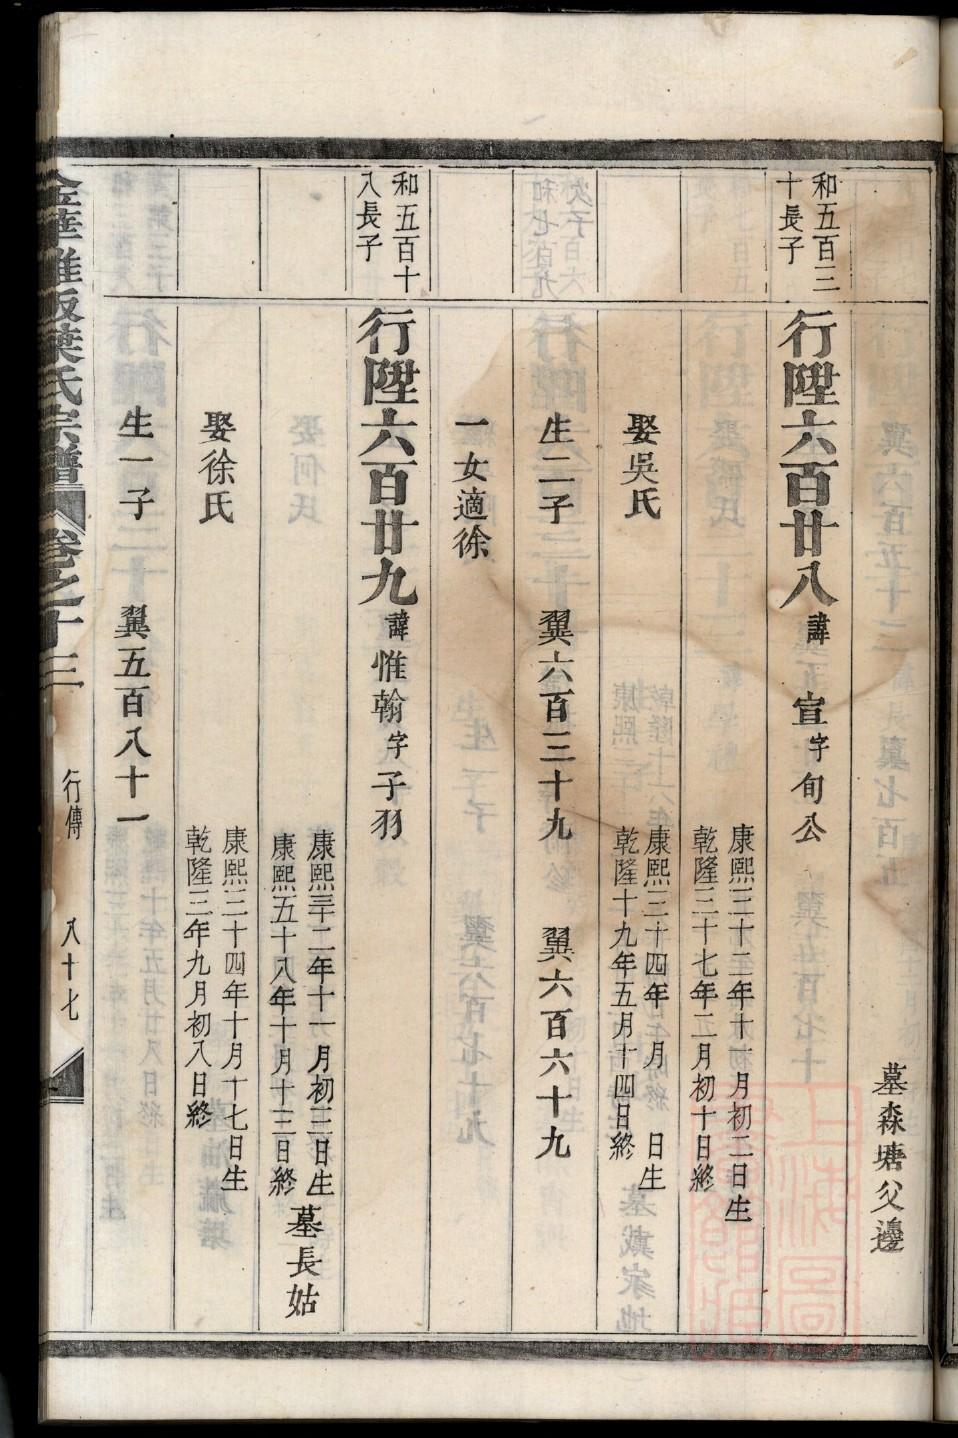 墓森塘父邊
和五百三
十長子
行陞六百廿八 諱宣字旬公
康熙三十二年十一月初二日生
乾隆三十七年二月初十日終
娶吳氏
康熙三十四年 月 日生
乾隆十九年五月十四日終
生二子 翼六百三十九 翼六百六十九
一女適徐
和五百十
八長子
行陞六百廿九 諱惟翰字子羽
康熙三十二年十一月初三日生
康熙五十八年十月十三日終
墓長姑
娶徐氏
康熙三十四年十月十七日生
乾隆三年九月初八日終
生一子 翼五百八十一
金華雅畈葉氏宗譜 卷之十三 行傳 八十七